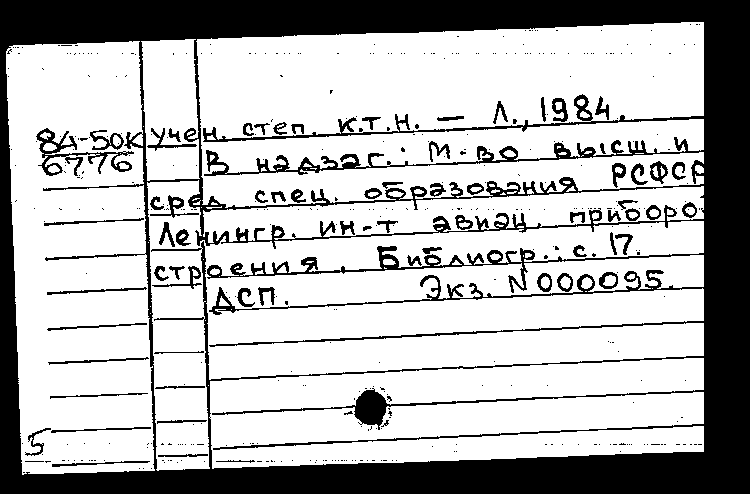 84-50К учен. степ. к.т.н. — Л., 1984.
6776 В надзаг.: М-во высш. и
сред. спец. образования РСФСР
Ленингр. ин-т авиац. приборо-
строения. Библиогр.: с. 17.
ДСП. Экз. N000095.
5